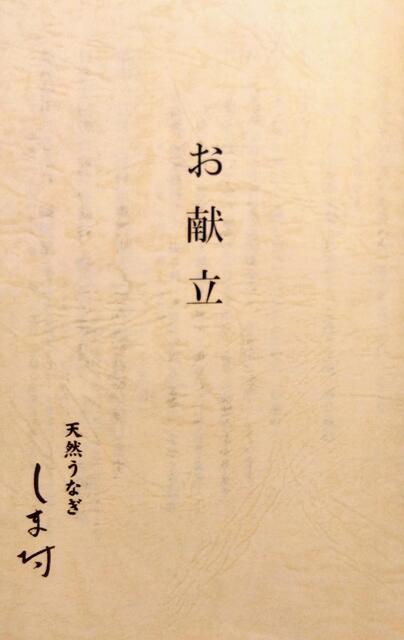 お献立
天然うなぎ
しま村